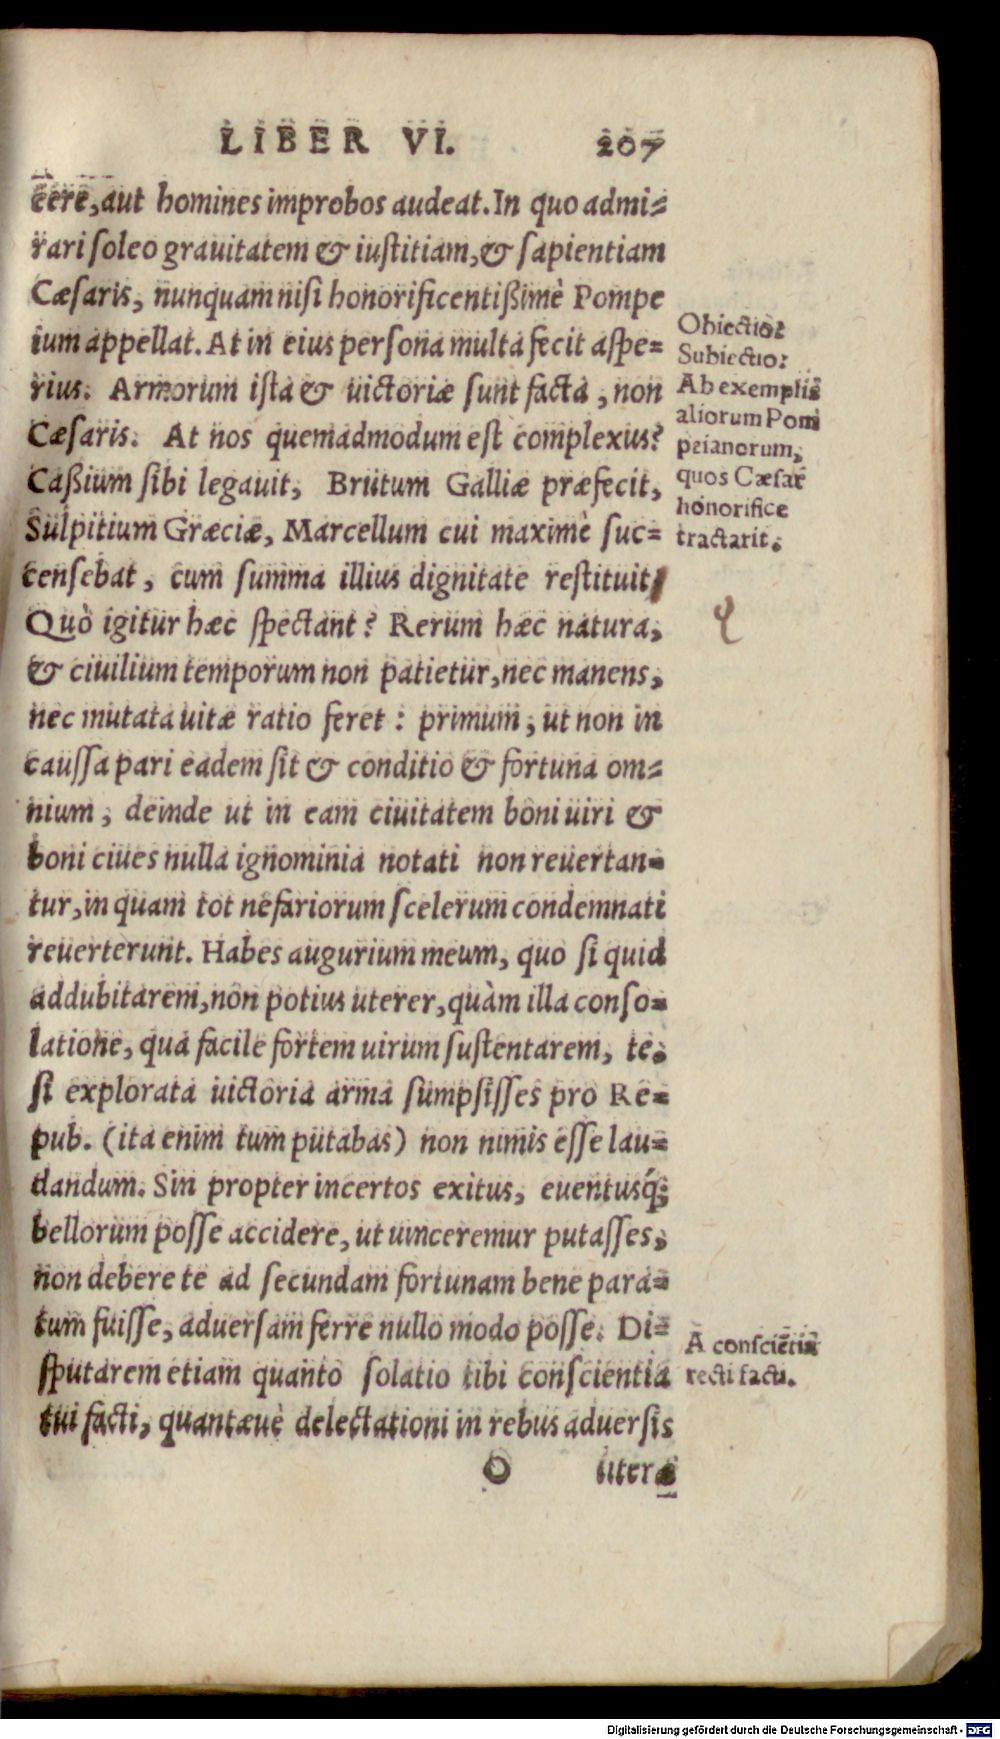 LIBER VI. 207
cere, aut homines improbos audeat. In quo admi-
rari soleo grauitatem & iustitiam, & sapientiam
Cæsaris, nunquam nisi honorificentißimè Pompe
ium appellat. At in eius persona multa fecit aspe-
rius. Armorum ista & uictoriæ sunt facta, non
Cæsaris. At nos quemadmodum est complexus?
Caßium sibi legauit, Brutum Galliæ præfecit,
Sulpitium Græciæ, Marcellum cui maximè suc-
censebat, cum summa illius dignitate restituit,
Quò igitur hæc spectant? Rerum hæc natura,
& ciuilium temporum non patietur, nec manens,
nec mutata uitæ ratio feret: primum, ut non in
caussa pari eadem sit & conditio & fortuna om-
nium, deinde ut in eam ciuitatem boni uiri &
boni ciues nulla ignominia notati non reuertan-
tur, in quam tot nefariorum scelerum condemnati
reuerterunt. Habes augurium meum, quo si quid
addubitarem, non potius uterer, quàm illa conso-
latione, qua facile fortem uirum sustentarem, te,
si explorata uictoria arma sumpsisses pro Re-
pub. (ita enim tum putabas) non nimis esse lau-
dandum. Sin propter incertos exitus, euentusq́;
bellorum posse accidere, ut uinceremur putasses,
non debere te ad secundam fortunam bene para-
tum fuisse, aduersam ferre nullo modo posse. Di-
sputarem etiam quanto solatio tibi conscientia
tui facti, quantæuè delectationi in rebus aduersis
O literæ
Obiectio:
Subiectio:
Ab exemplis
aliorum Pom
peianorum,
quos Cæsar
honorifice
tractarit.
A consciẽtia
recti facti.
Digitalisierung gefördert durch die Deutsche Forschungsgemeinschaft - DFG